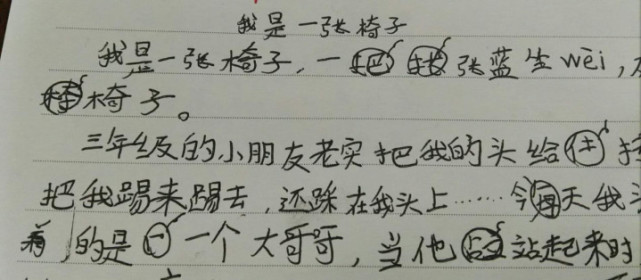 我是一张椅子
我是一张椅子,一张蓝生wèi,
椅子。
三年级的小朋友老实把我的头给
把我踢来踢去,还踩在我头上……今天我
的是一个大哥哥,当他站起来时